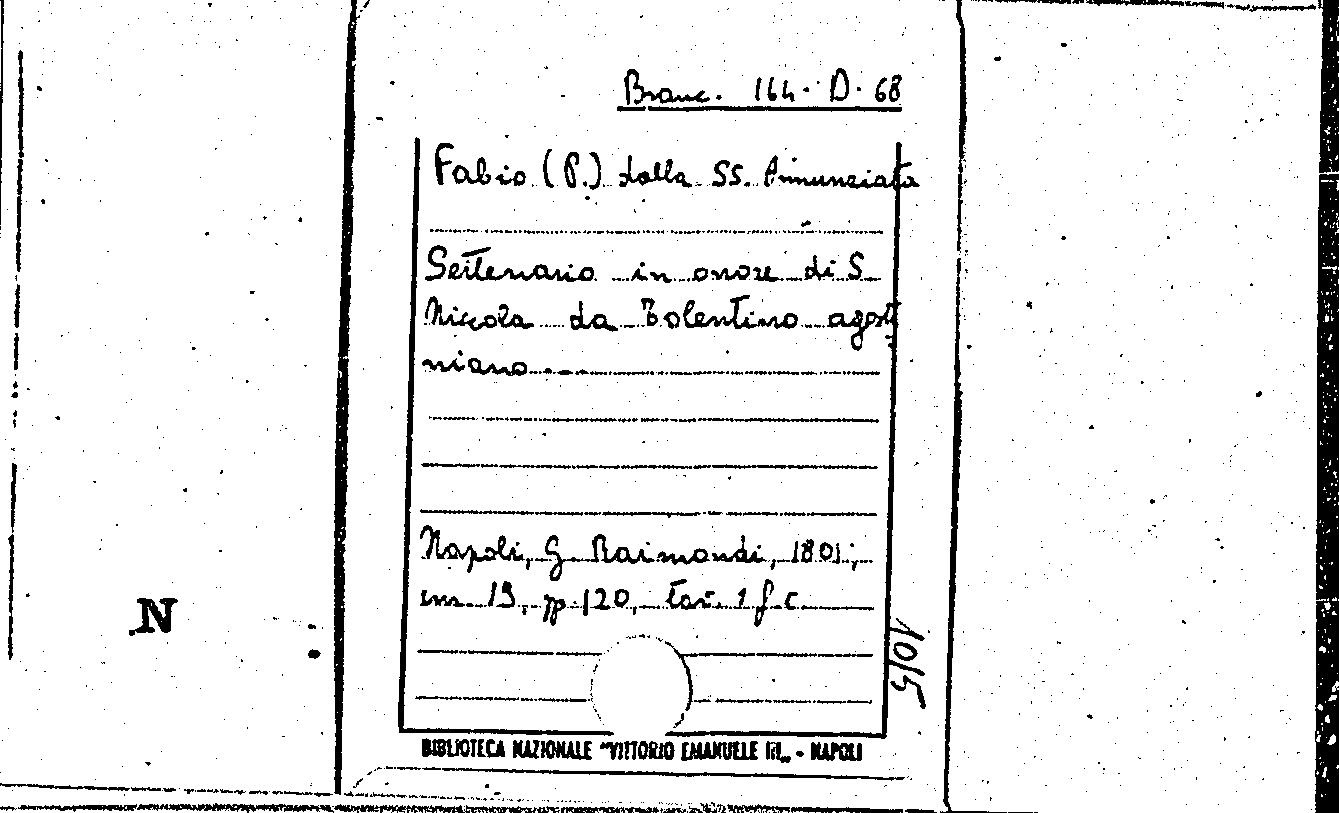 Branc. 164. D. 68
Fabio (P.) dalla SS. Annunziata
Settenario in onore di S.
Niccola da Tolentino agosti
niano....
Napoli, G. Raimondi, 1801;
cm. 19, pp. 120, tav. 1 f. c.
10/5
N
BIBLIOTECA NAZIONALE "VITTORIO EMANUELE III„ - NAPOLI